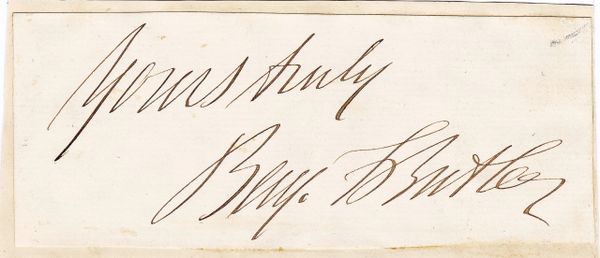 Yours truly
Benj. F Butler